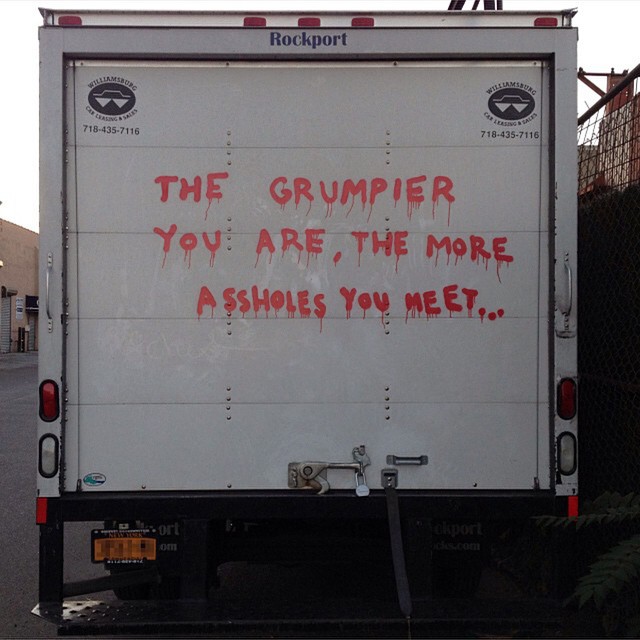 Rockport
WILLIAMSBURG
CAR LEASING & SALES
718-435-7116
WILLIAMSBURG
CAR LEASING & SALES
718-435-7116
THE GRUMPIER
YOU ARE, THE MORE
ASSHOLES YOU MEET...
NEW YORK